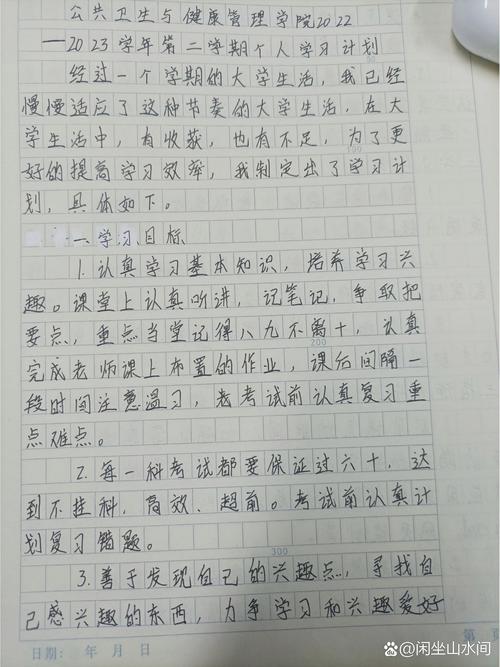 公共卫生与健康管理学院2022
—2023学年第二学期个人学习计划
经过一个学期的大学生活，我已经
慢慢适应了这种节奏的大学生活，在大
学生活中，有收获，也有不足，为了更
好的提高学习效率，我制定出了学习计
划，具体如下。
一、学习目标
1.认真学习基本知识，培养学习兴
趣。课堂上认真听讲，记笔记，争取把
要点，重点当堂记得八九不离十，认真
200
完成老师课上布置的作业，课后间隔一
段时间注意温习，老考试前认真复习重
点难点。
2.每一科考试都要保证过六十，达
到不挂科，高效、超前。考试前认真计
划复习错题。
300
3.善于发现自己的兴趣点，寻找自
己感兴趣的东西，力争学习和兴趣爱好
日期： 年 月 日
第 页
@闲坐山水间